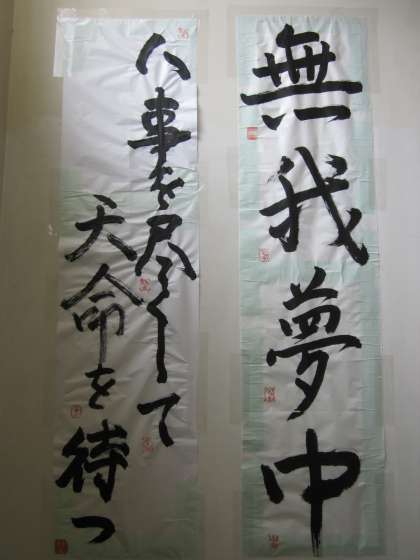 無我夢中
人事を尽くして
天命を待つ